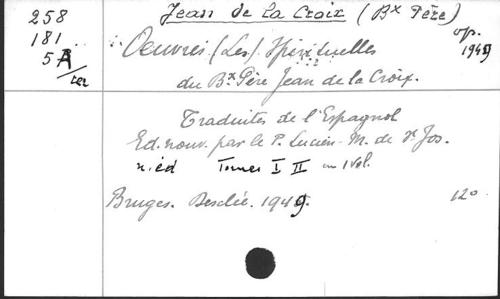 258
181
5A/ter
Jean de la Croix (Bx Père)
op. 1949
Oeuvres (Les) Spirituelles
du Bx Père Jean de la Croix.
Traduites de l'Espagnol
Ed. nouv. par le P. Lucien-M. de St Jos.
n. éd Tomes I II en 1 Vol.
Bruges. Desclée. 1949. 12°